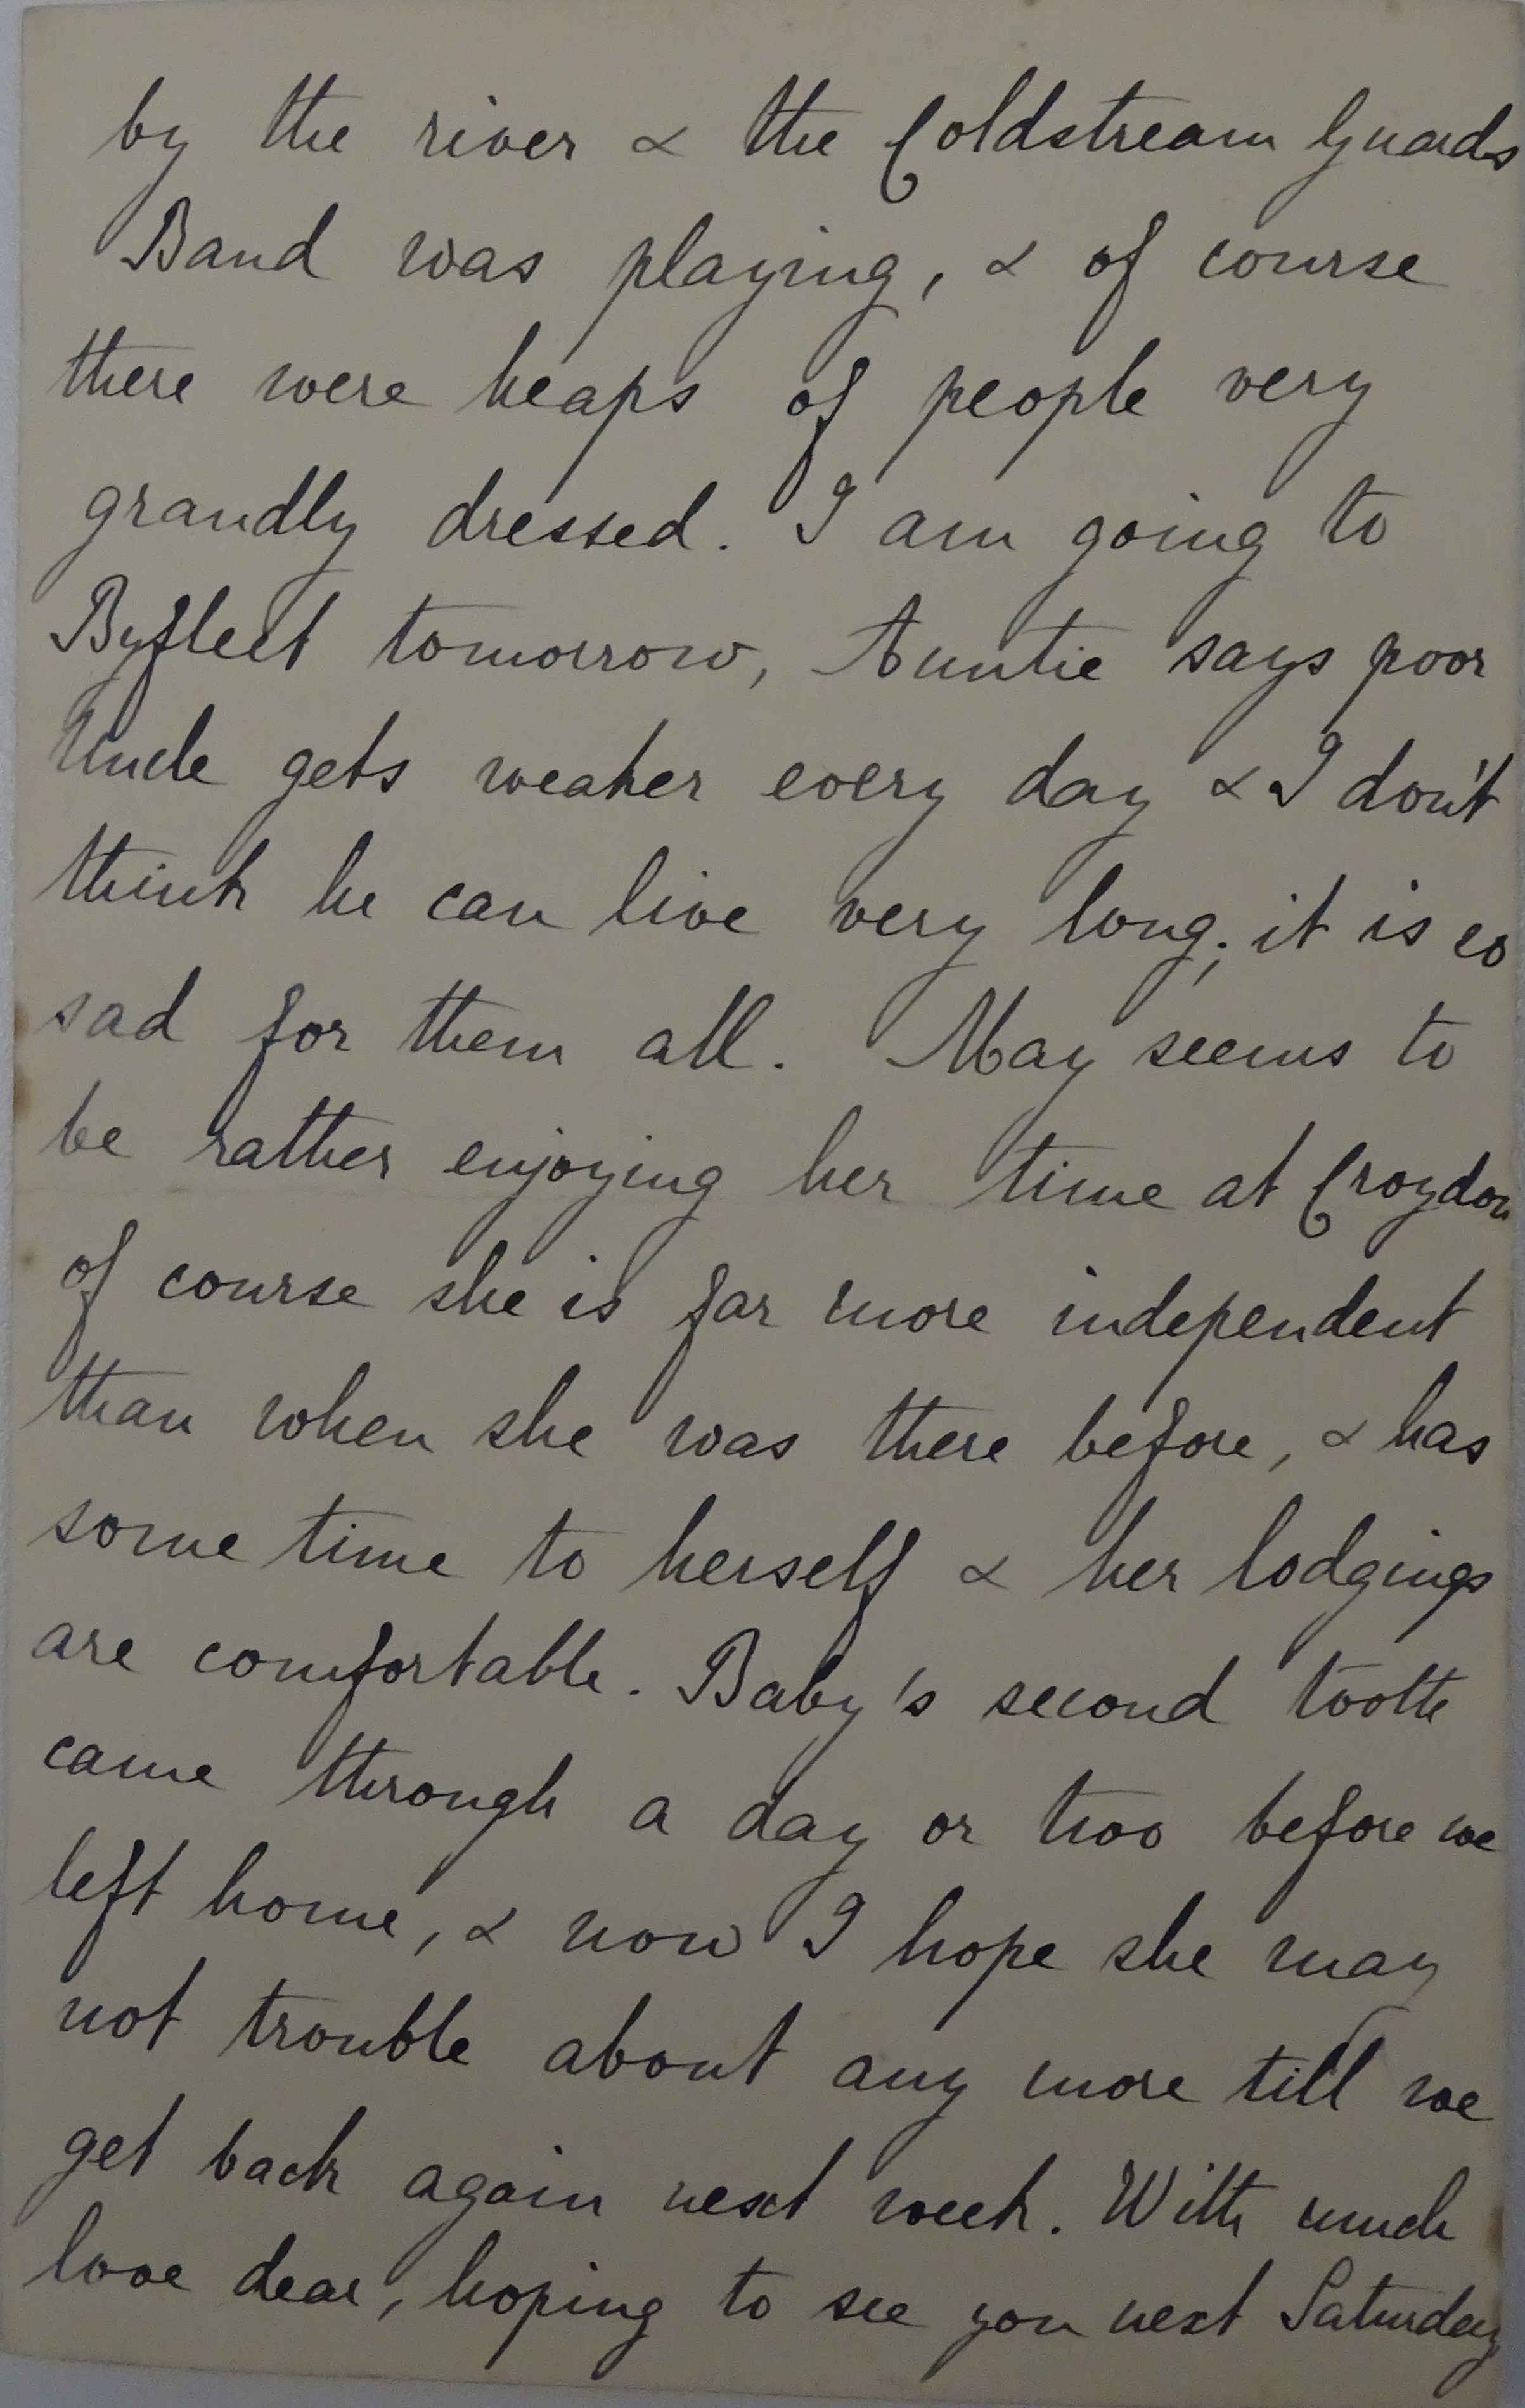 by the river & the Coldstream Guards
Band was playing, & of course
there were heaps of people very
grandly dressed. I am going to
Byfleet tomorrow, Auntie says poor
Uncle gets weaker every day & I don't
think he can live very long; it is so
sad for them all. May seems to
be rather enjoying her time at Croydon
of course she is far more independent
than when she was there before, & has
some time to herself & her lodgings
are comfortable. Baby's second tooth
came through a day or two before we
left home, & now I hope she may
not trouble about any more till we
get back again next week. With much
love dear, hoping to see you next Saturday